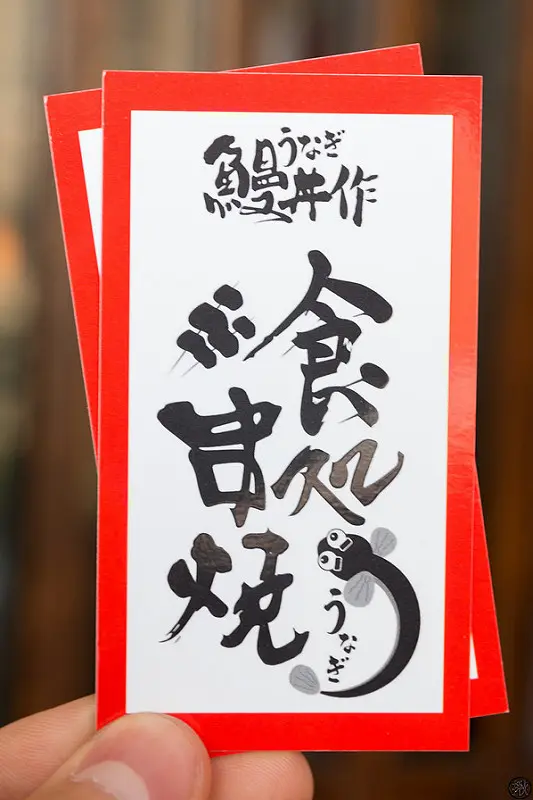 うなぎ
鰻丼作
食処
串焼
うなぎ